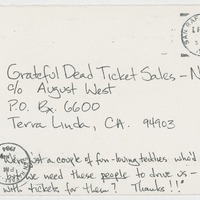 Grateful Dead Ticket Sales - N
c/o August West
P.O. Bx. 6600
Terra Linda, CA. 94903
just a couple of fun-loving teddies who'd
but we need these people to drive us -
with tickets for them? Thanks!!"
SAN RAF
1994